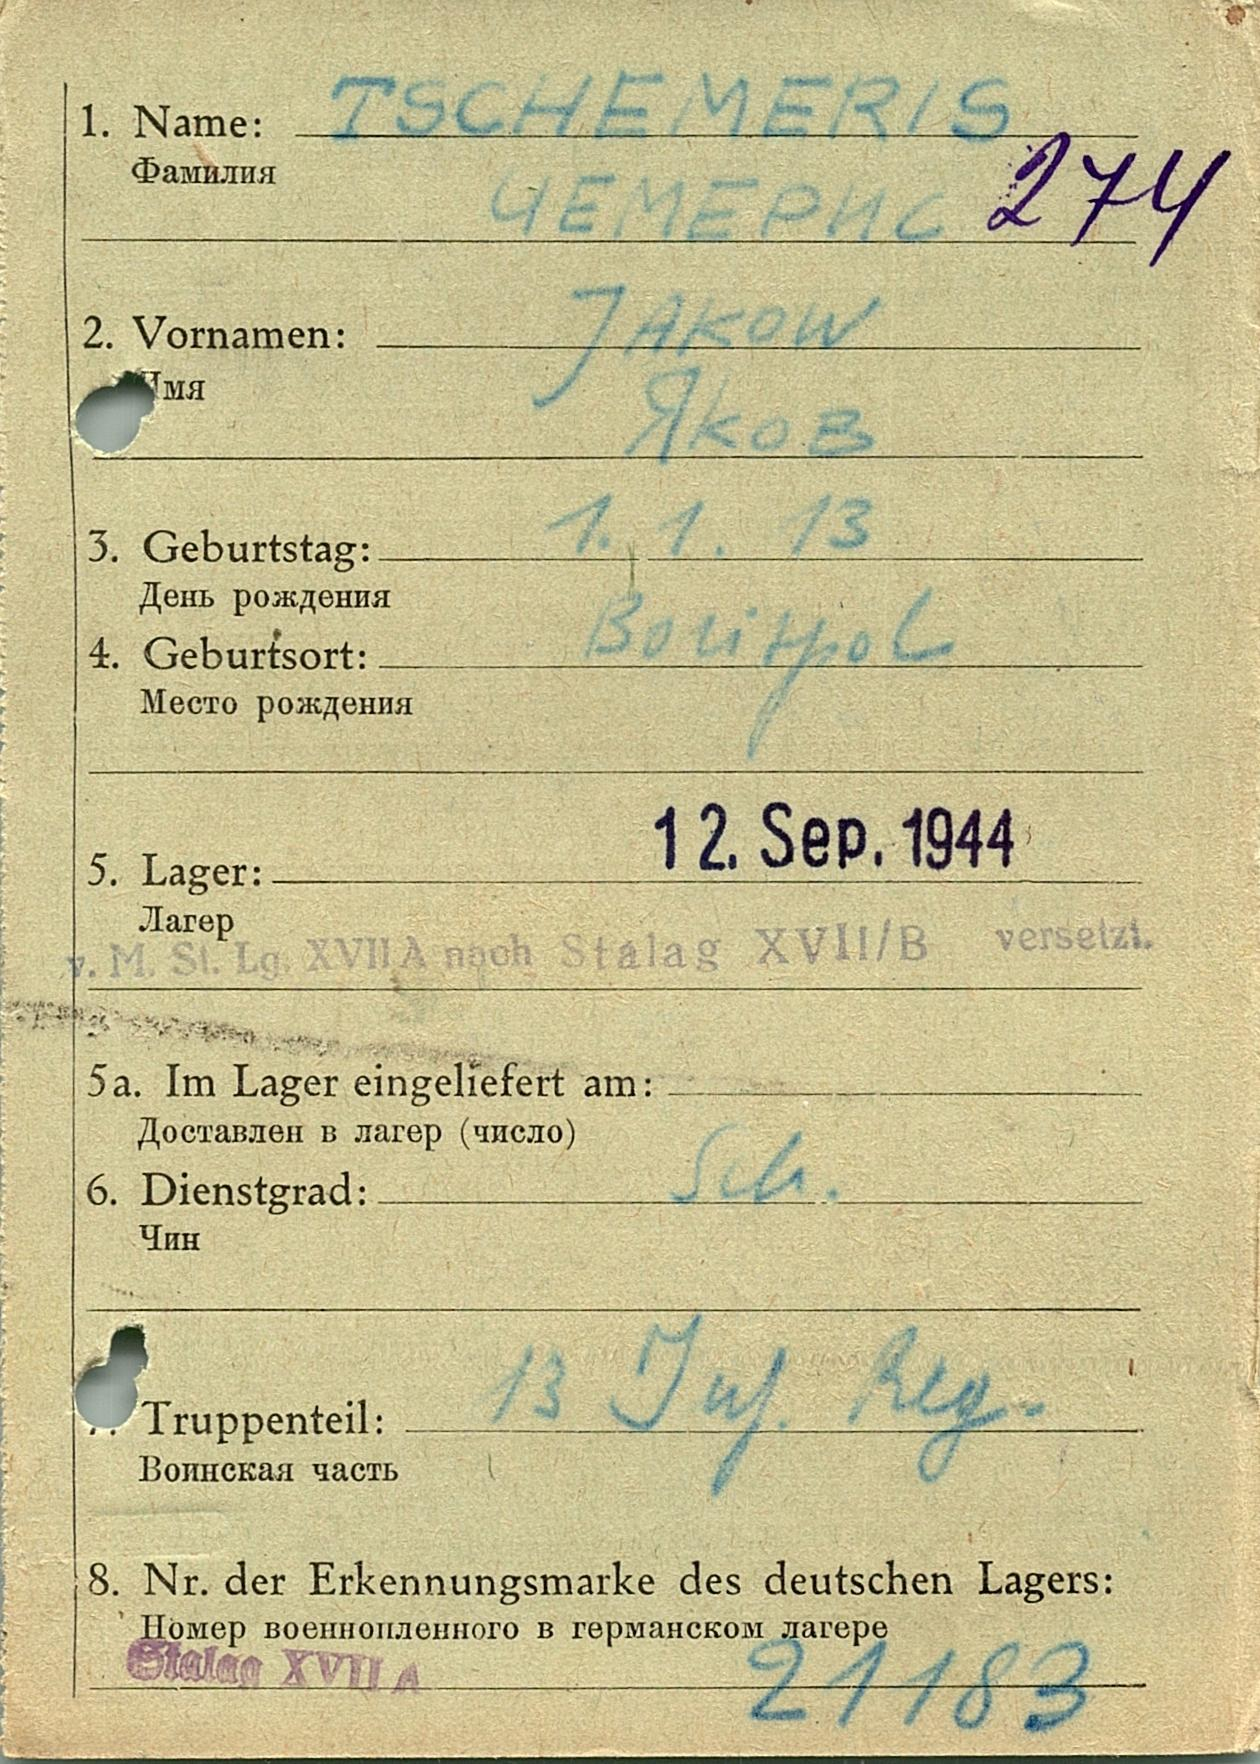 1. Name: TSCHEMERIS
Фамилия
ЧЕМЕРИС 274
2. Vornamen: JAKOW
Имя
Яков
3. Geburtstag: 1. 1. 13
День рождения
4. Geburtsort: Boritpol
Место рождения
12. Sep. 1944
5. Lager:
Лагер
v. M. St. Lg. XVII A nach Stalag XVII/B versetzt.
5a. Im Lager eingeliefert am:
Доставлен в лагер (число)
6. Dienstgrad: Sch.
Чин
Truppenteil: 13 Inf. Reg.
Воинская часть
8. Nr. der Erkennungsmarke des deutschen Lagers:
Номер военнопленного в германском лагере
Stalag XVII A 21183